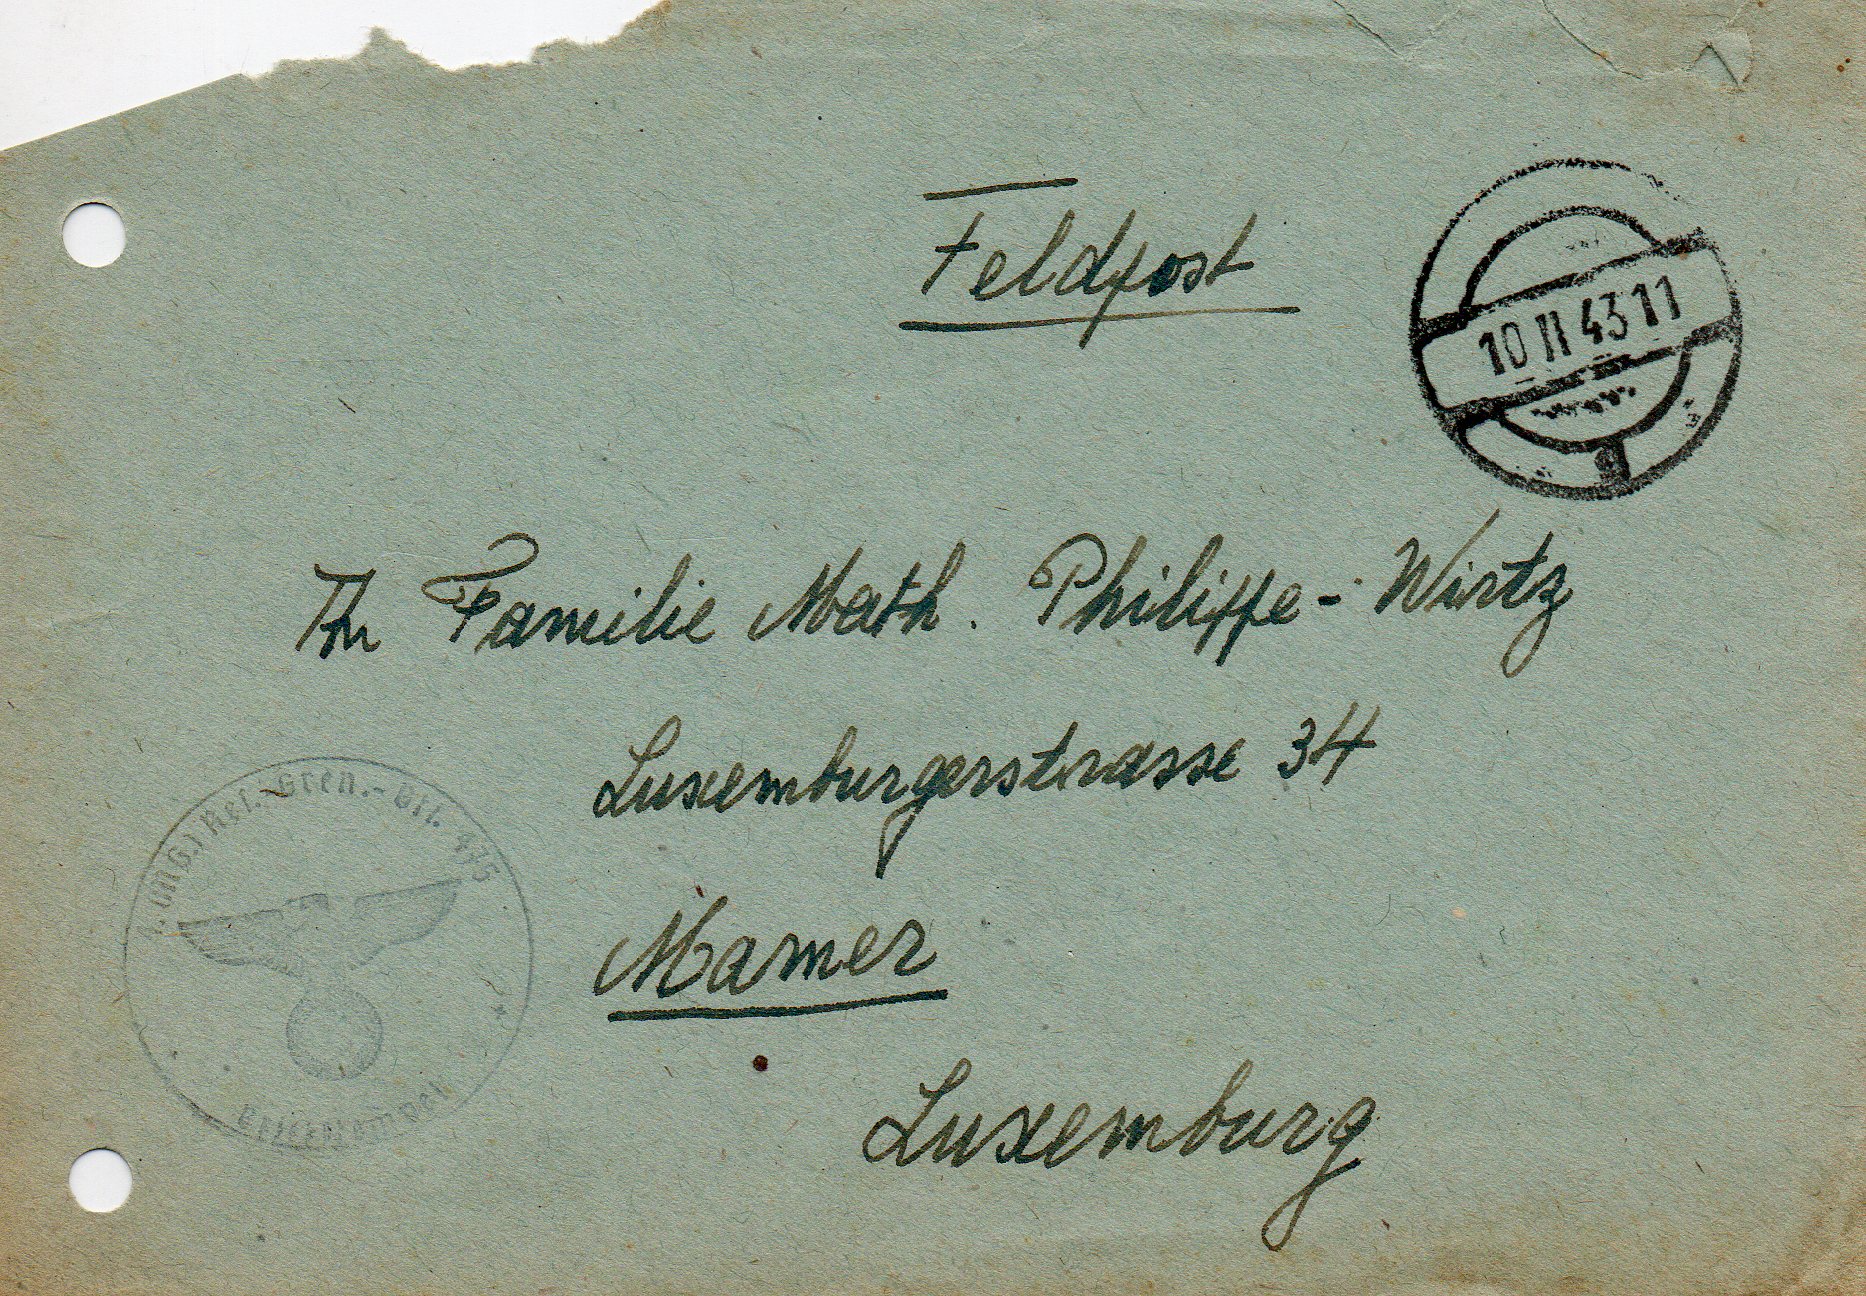 Feldpost
10 11 43 11
An Familie Math. Philippe-Wirtz
Luxemburgerstrasse 34
Mamer
Luxemburg
Gren.- Btl.
Briefstempel